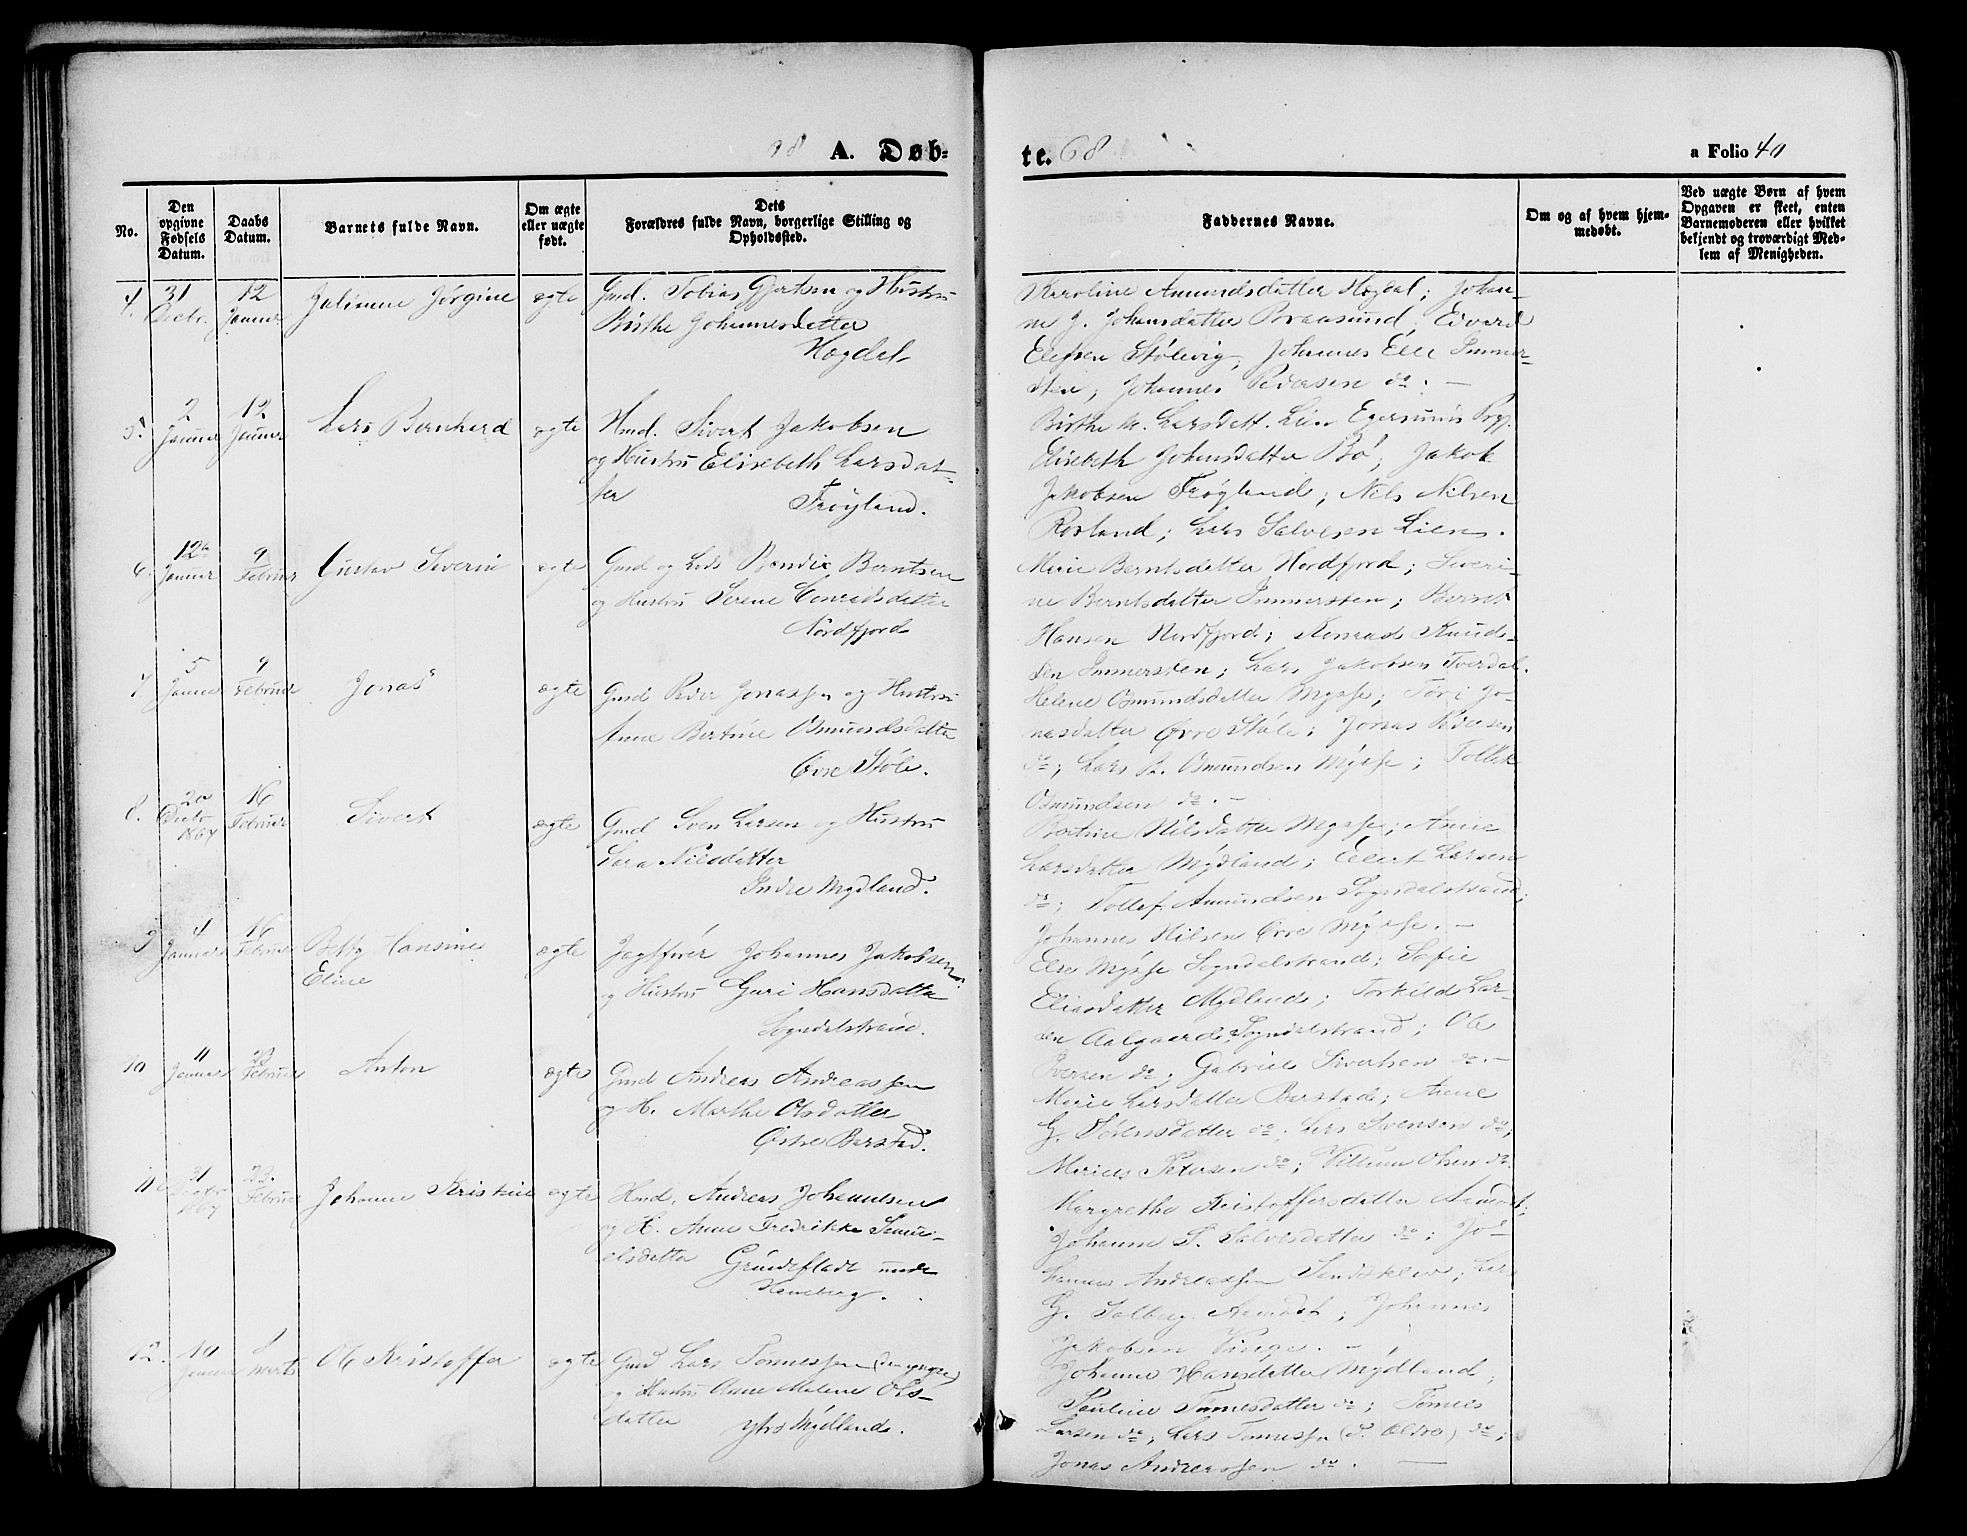 A. Døb-
te. 68
a Folio 40
No.
Den opgivne Fødsels Datum.
Daabs Datum.
Barnets fulde Navn.
Om ægte eller uægte født.
Dets Forældres fulde Navn, borgerlige Stilling og Opholdssted.
Faddernes Navne.
Om og af hvem hjemmedøbt.
Ved uægte Børn af hvem
Opgaven er skeet, enten
Barnemoderen eller hvilket
bekjendt og troværdigt Med-
lem af Menigheden.
4. 31 Decbr. 12 Januar Jørgine ægte Gmd. Tobias Gjertsen og Hustru
Birthe Johannesdatter
Haagdal
Karoline Amundsdatter Hogdal; Johan-
ne J. Johansdatter Braasund; Edvard
Elefsen Stølevig; Johannes
sten; Johannes Pedersen do. —
5. 2 Januar 12 Januar Lars Bernhard ægte Hmd. Sivert Jakobsen
og Hustru Elisebeth Larsdat-
ter
Frøyland.
Birthe M. Larsdatt. Lien Egersunds
Elisebeth Johansdatter Bø; Jakob
Jakobsen Frøyland; Nils Nilsen
Rosland; Lars Salvesen Lien.
6. 12 Januar 9 Februar Gustav Severin ægte Gmd og Lods Bendix Berntsen
og Hustru Serene Conradsdatter
Nordfjord
Marie Berntsdatter Nordfjord; Severi-
ne Berntsdatter Immersten; Bernt
Hansen Nordfjord; Konrad Knuds-
sen Immersten; Lars Jakobsen Tverdal.
7. 5 Januar 9 Februar Jonas ægte Gmd Peder Jonassen og Hustru
Anne Bertine Osmundsdatter
Øvre Støle.
Helene Osmundsdatter Mysse; Tori Jo-
nasdatter Øvre Støle; Jonas Pedersen
do; Lars R. Osmundsen Mysse; Tollek
Osmundsen do. —
8. 20 Decbr 1867 16 Februar Sivert ægte Gmd Sven Larsen og Hustru
Sara Nilsdatter
Indre Mydland.
Bertine Nilsdatter Mysse; Anne
Larsdatter Mydland; Eilert Larsen
do; Tollef Amundsen Sogndalstrand;
Johannes Nilsen Øvre Mysse. —
9 4 Januar 16 Februar Hansine
Eline
ægte Jagtfører Johannes Jakobsen
og Hustru Guri Hansdatter
Sogndalstrand.
Else Mysse Sogndalstrand; Sofie
Eliasdatter Mydland; Torkild Lar-
sen Aalgaard Sogndalstrand; Ole
Iversen do; Gabriel Sivertsen do. —
10 11 Januar 23 Februar Anton ægte Gmd Andreas Andreassen
og H. Marthe Olsdatter
Østre Barstad.
Marie Larsdatter Barstad; Anne
G. Sørensdatter do; Lars Svensen do;
Petersen do; Villum Olsen do.
11 31 Decbr 1867 23 Februar Johanne Kristine ægte Hmd. Andreas Johannesen
og H. Anne Fredrikke Samu-
elsdatter Grundeflade under
Haneberg.
Margrethe Kristoffersdatter Aamodt;
Johanne S. Salvesdatter do; Jo-
hannes Andreassen Sandsklev; Lars
G. Solberg Aamodt; Johannes
Jakobsen Vinge. —
12. 10 Januar 1 Marts Ole Kristoffer ægte Gmd Lars Tønnessen (den yngre)
og Hustru Anne Malene Ols-
datter Ytre Mydland.
Johanne Hansdatter Mydland;
Pauline Tønnesdatter do; Tønnes
Larsen do; Lars Tønnessen (d. Ældre) do;
Jonas Andreassen do. —